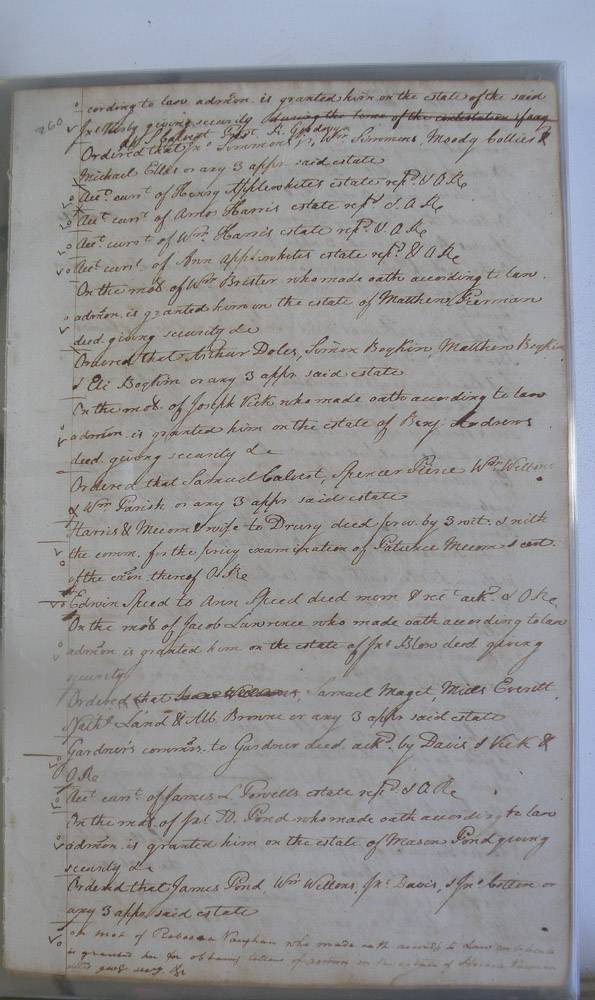 260
cording to law admon. is granted him on the estate of the said
Jno giving security during the time of the contestation
Ordered that Jno Simmons Jr, Wm Simmons, Moody Collier &
Michael Ellis or any 3 appr said estate
Acct. currt. of Henry Applewhites estate retd. & O Re
Acct. currt of Amos Harris estate retd. & O Re
Acct. currt. of Wm. Harris estate retd. & O Re
Acct currt. of Ann Applewhites estate retd. & O Re
On the mo. of Wm Brister who made oath according to law
admon. is granted him on the estate of Matthew
decd. giving security &c
Ordered that Arthur Doles, Simon Boykin, Matthew Boykin
& Eli Boykin or any 3 appr said estate
On the mo. of Joseph Vick who made oath according to law
admon. is granted him on the estate of Benj. Andrews
decd. giving security &c
Ordered that Samuel Calvert, Spencer Pierce Wm Wellons
& Wm Parish or any 3 appr said estate
Harris & Mecom & wife to Drury deed by 3 wit. & with
the comm. for the privy examination of Patience Mecom & cert.
of the exon. thereof O. Re
Edwin Speed to Ann Speed deed & rect ackd. & O Re
On the mo. of Jacob Lawrence who made oath according to law
admon. is granted him on the estate of Jno Blow decd giving
security
Ordered that Samuel Maget, Mills Everitt
Nathl. Land & Alb. Browne or any 3 appr said estate
Gardner's commrs. to Gardner deed ackd. by Davis & Vick &
O. Re
Acct currt. of James L. Powells estate retd. & O. Re
On the mo. of D. Pond who made oath according to law
admon. is granted him on the estate of Mason Pond giving
security &c
Ordered that James Pond Wm Wellons, Jno. Davis, & Jno. Cotten or
any 3 appr said estate
on mo. of Rebecca Vaughan who made oath accordg to Law
is granted her for obtaining letters of admon on the estate of
decd givg secy. &c